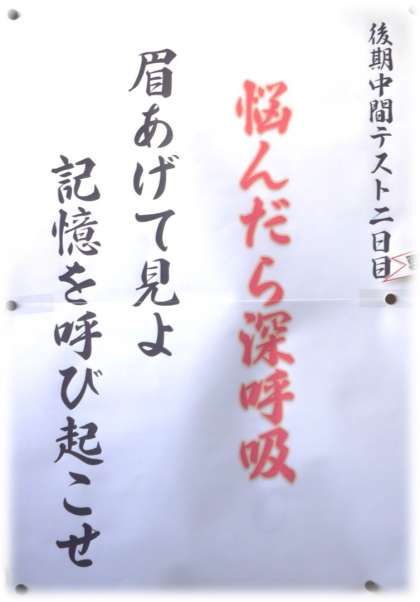 後期中間テスト二日目
悩んだら深呼吸
眉あげて見よ
記憶を呼び起こせ